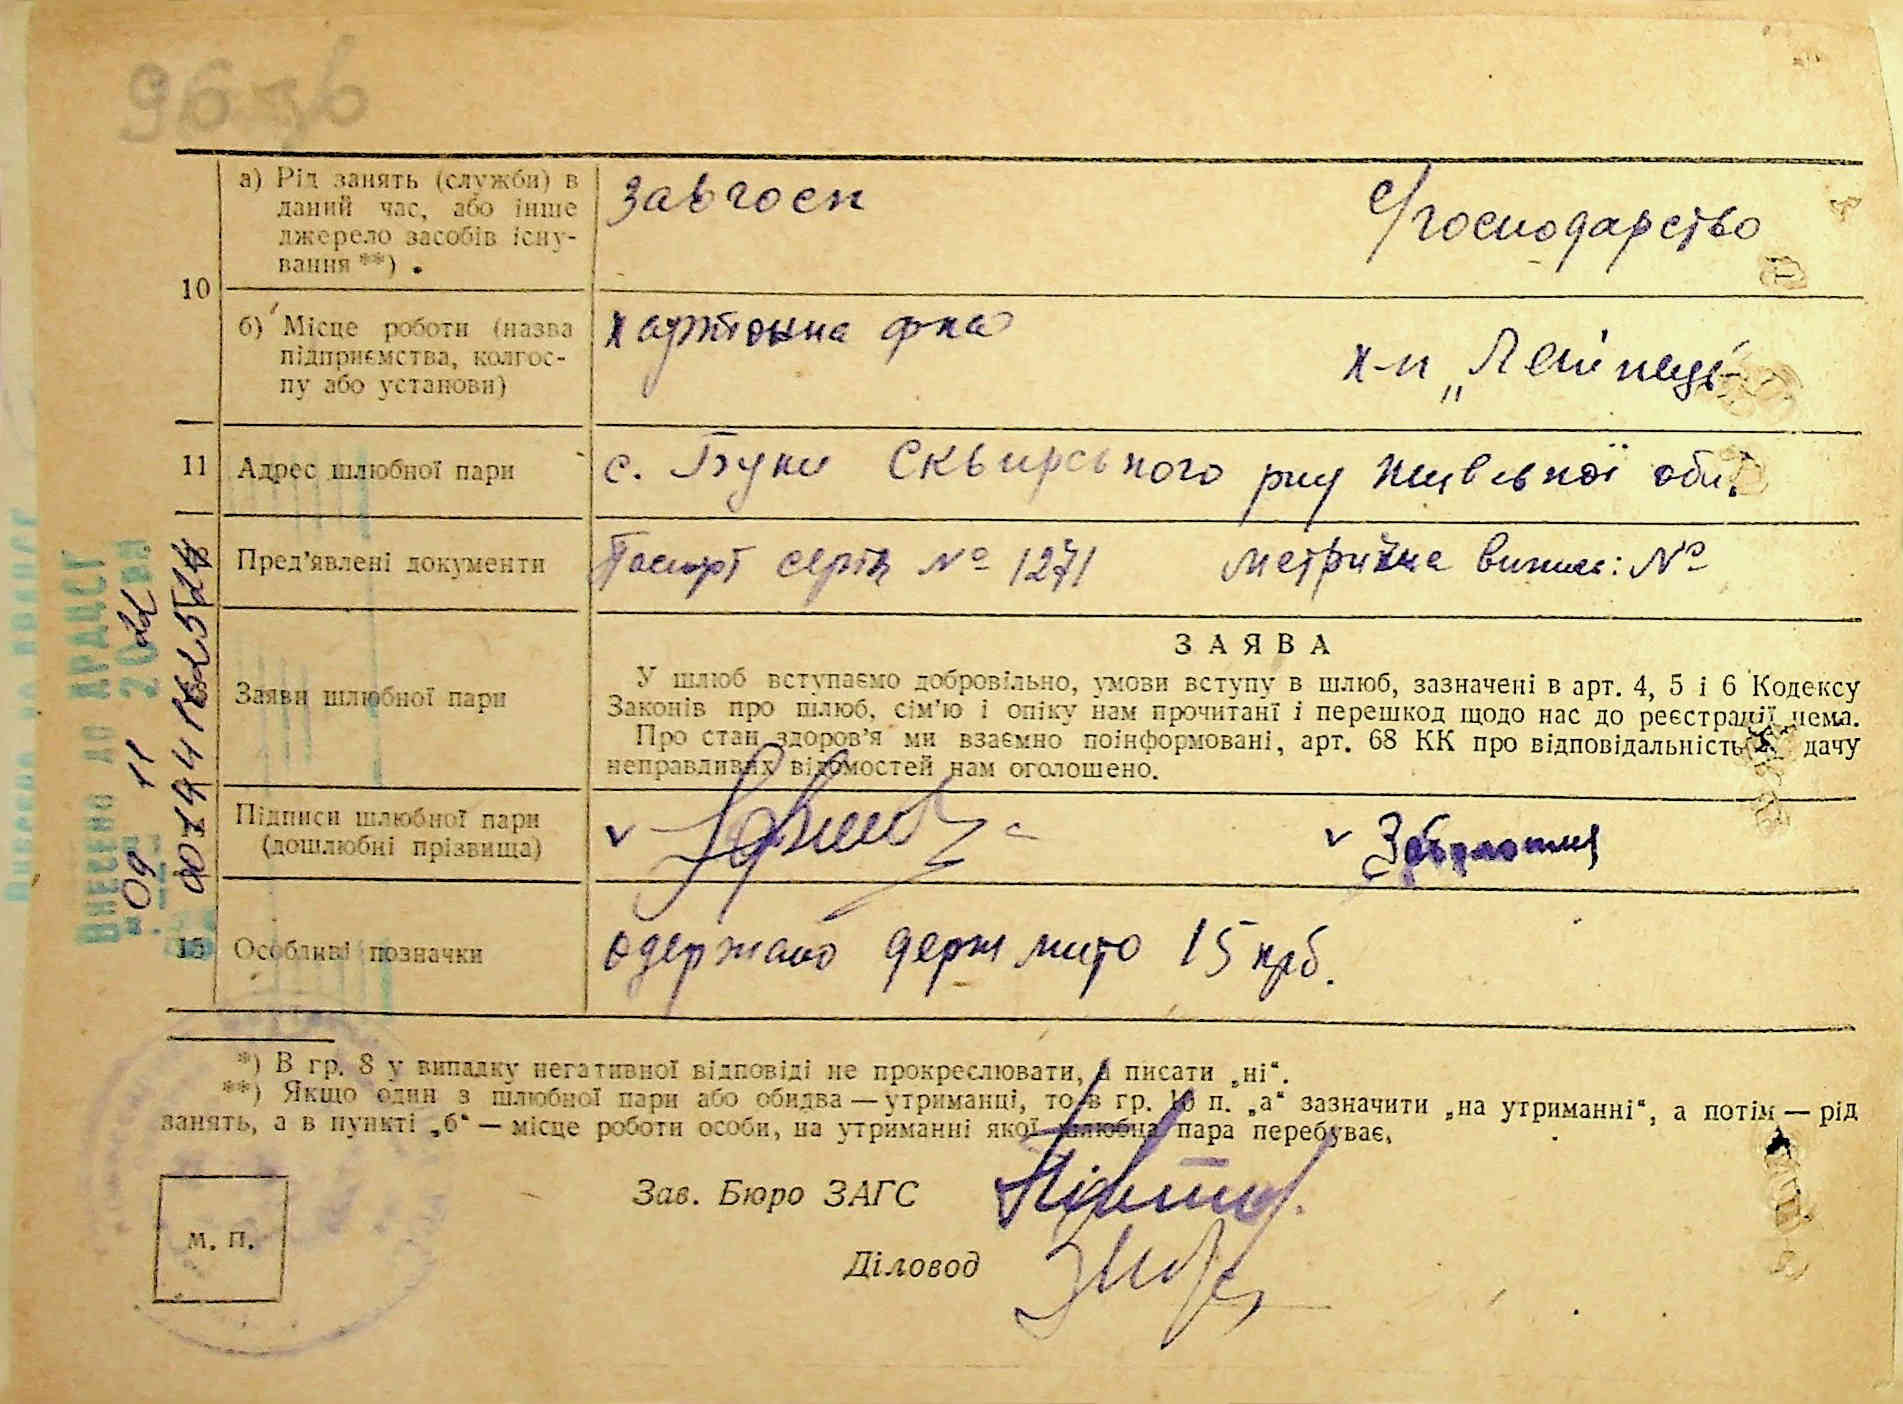 а) Рід занять (служби) в
даний час, або інше
джерело засобів існу-
вання **) .
завгосп
с/господарство
10
б) Місце роботи (назва
підприємства, колгос-
пу або установи)
к-п „
11
Адрес шлюбної пари
с. Буки Сквирського р-ну Київської обл.
Пред'явлені документи
Паспорт серія № 1271
Метрична випись: №
Заяви шлюбної пари
ЗАЯВА
У шлюб вступаємо добровільно, умови вступу в шлюб, зазначені в арт. 4, 5 і 6 Кодексу
Законів про шлюб, сім'ю і опіку нам прочитані і перешкод щодо нас до реєстрації нема.
Про стан здоров'я ми взаємно поінформовані, арт. 68 КК про відповідальність дачу
неправдивих відомостей нам оголошено.
Підписи шлюбної пари
(дошлюбні прізвища)
15
Особливі позначки
одержано держ мито 15 крб.
Внесено до ДРАЦСГ
"09" 11 2022
*) В гр. 8 у випадку негативної відповіді не прокреслювати, а писати „ні“.
**) Якщо один з шлюбної пари або обидва — утриманці, то в гр. 10 п. „а“ зазначити „на утриманні“, а потім — рід
занять, а в пункті „б“ — місце роботи особи, на утриманні якої шлюбна пара перебуває.
Зав. Бюро ЗАГС
Діловод
М. П.